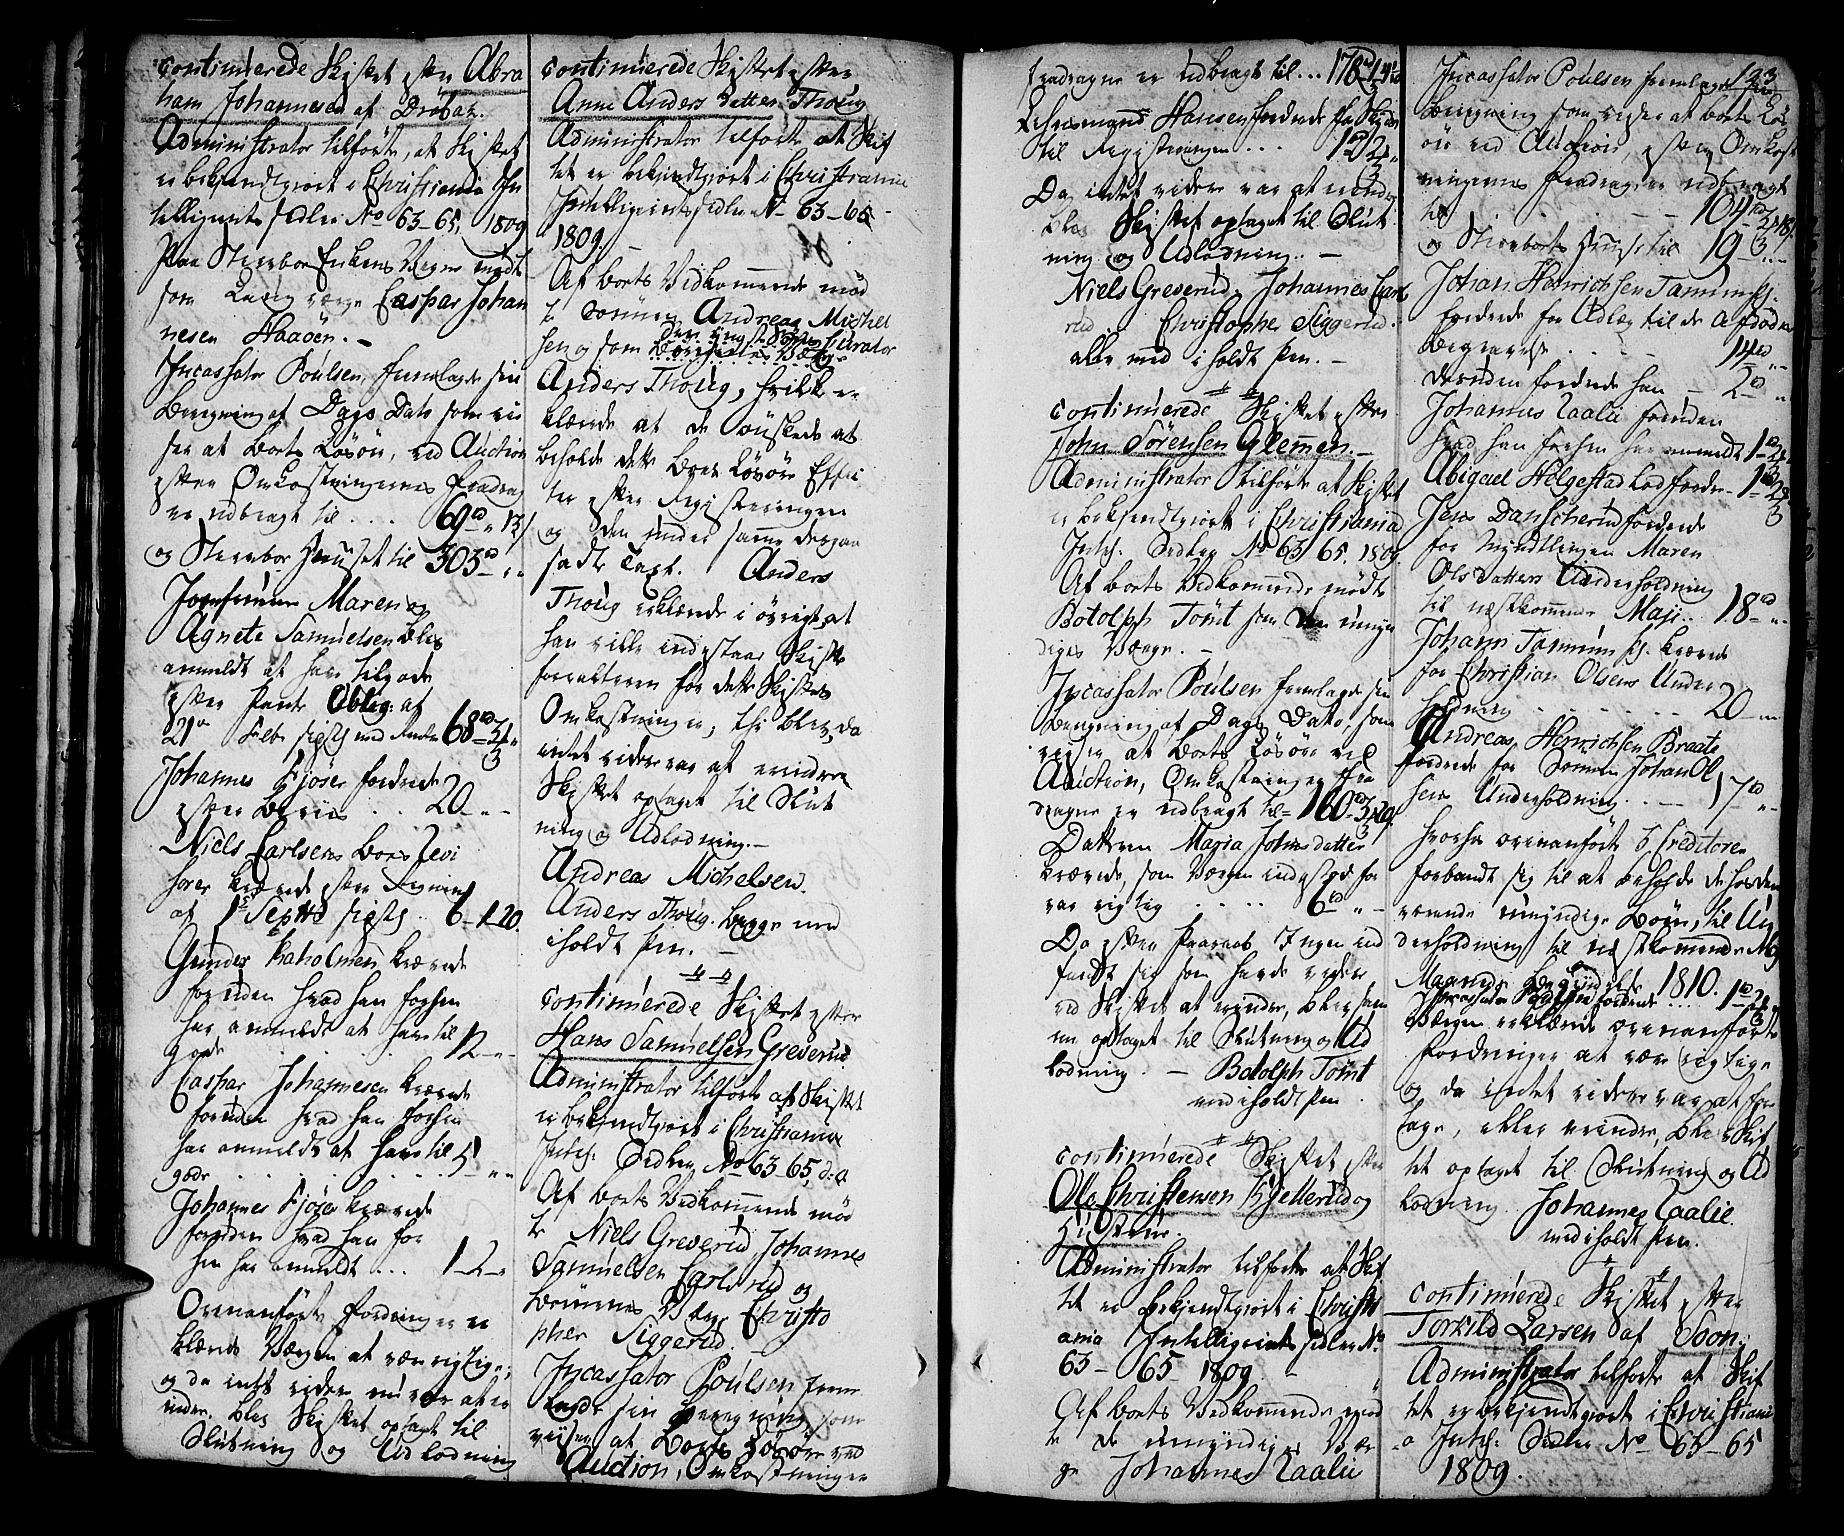 continuerede Skiftet efter Abra
ham Johannesen af Drøbak.
Administrator tilførte, at Skiftet
er bekjendtgiort i Christiania In
telligents Sedler No 63-65, 1809
Paa Sterbo Enkens Vegne mødte
som Laugværge Caspar Johan
nesen Haaøen.
Incassator Poulsen fremlagde sin
Beregning af Dags Dato som vii
ser at Boets Løsøre, ved Auction
efter Omkostningernes Fradrag
er udbragt til .... 69 rd " 13 s
og Sterboe Huuset til 303 rd " "
Jomfruerne Maren og
Agnete Samuelsen blev
anmeldt at have tilgode
efter Pante Oblig: af
21de Febr sidstl med Renter 68 rd
Johannes Kjøser fordrede
efter Beviis .. 20 " "
Niels Carlsens Boes Revi
sorer krævede efter Regning
af 1ste Septb sidstl .. 6-1-20.
Gunder Kaholmen krævede
foruden hvad han forhen
har anmeldt at have til
gode 12 " "
Caspar Johannesen krævede
foruden hvad han forhen
har anmeldt at have til
gode ..... 5 " "
Johannes Kjøser krævede
foruden hvad han for
hen har anmeldt ... 1-2-"
Ovenanførte Fordringer er
klærede Værgen at være rigtige;
og da intet videre nu var at er
indre, blev Skiftet optaget til
Slutning og Udlodning
continuerede Skiftet efter
Anne Anders Datter Thoug
Administrator tilførte at Skif
tet er bekjendtgiort i Christiania
Intelligents Sedler No 63-65
1809.
Af Boets Vedkommende mød
te Sønnen Andreas Michel
sen og som den yngste Søns Curator
Anders Thoug, hvilke er
klærede at de ønskede at
beholde dette Boes Løsøre Effec
ter efter Registeringen
og den under samme derpaa
satte Taxt. Anders
Thoug erklærede i øvrigt at
han ville indestaae Skifte
forvalteren for dette Skiftes
Omkostninger, thi blev, da
intet videre var at erindre
Skiftet optaget til Slut
ning og Udlodning.
Andreas Michelsen.
Anders Thoug. begge med
iholdt Pen.
continuerede Skiftet efter
Hans Samuelsen Greverud
Administrator tilførte at Skiftet
er bekjendtgiort i Christiania
Intell: Sedler No 63-65, d: A
Af Boets Vedkommende mød
te Niels Greverud, Johannes
Samuelsen Carlsrud og
Børnenes Værge Christo
pher Siggerud.
Incassator Poulsen frem
lagde sin Beregning som
viiser at Boets Løsøre ved
Auction, Omkostninger
fradragne er udbragt til ... 176
Lehnsmand Hansen fordrede for Skyds
til Registeringen ... 1
Da intet videre var at erindre
blev Skiftet optaget til Slut
ning og Udlodning.
Niels Greverud, Johannes Carls
rud, Christopher Siggerud.
alle med iholdt Pen.
continuerede Skiftet efter
John Sørensen Glemmen.
Administrator tilførte at Skiftet
er bekjendtgiort i Christiania
Intell: Sedler No 63 65, 1809.
Af Boets Vedkommende mødte
Botolph Tomt som den umyn
diges Værge.
Incassator Poulsen fremlagde sin
Beregning af Dags Dato, som
viiser at Boets Løsøre ved
Auction, Omkostninger fra
dragne er udbragt til 160
Datteren Maria Johnsdatter
krævede, som Værgen indestod for
var rigtig ..... 6 rd " "
Da efter Paaraab Ingen ind
fandt sig som havde videre
ved Skiftet at erindre, blev sam
me optaget til Slutning og Ud
lodning. Botolph Tomt
med iholdt Pen.
continuerede Skiftet efter
Ole Christensen Kjetterud og
Hustrue.
Administrator tilførte at Skif
tet er bekjendtgiort i Christi
ania Intelligents Sedler No
63-65 1809.
Af Boets Vedkommende mød
te de umyndiges Vær
ge Johannes Raalie
123
Incassator Poulsen fremlagde sin
Beregning som viser at Boets Løs
øre ved Auction, efter Omkost
ningernes Fradrag er udbragt
til 104
og Sterboets Huuse til 19 " "
Johan Henrichsen Tamum
fordrede for Udlæg til de Afdødes
Begravelse .. 14 rd " "
desuden fordrede han - 2 rd "
Johannes Raalie foruden
hvad han forhen har anmeldt 1
Abigael Helgestad fordrede 1
Jens Danscherud fordrede
for Myndtlingen Maren
Olsdatters Underholdning
til næstkommende Maji .. 18 rd "
Johan Tamum krævede
for Christian Olsens Under
holdning ....... 20 " "
Andreas Henrichsen Braate
fordrede for Sønnen Johan Ol
sens Underholdning .. 17 rd "
hvorhos ovenanførte 3 Creditorer
forbandt sig til at beholde de hos dem
værende umyndige Børn, til Un
derholdning til næstkommende Maj
Maaneds Begyndelse 1810.
Incassator Poulsen fordrede ... 1
Værgen erklærede ovenanførte
Fordringer at være rigtige
og da intet videre var at fore
tage, eller erindre, blev Skif
tet optaget til Slutning og Ud
lodning. Johannes Raalie.
med iholdt Pen.
continuerede Skiftet efter
Torkild Larsen af Soon.
Administrator tilførte at Skif
tet er bekjendtgiort i Christiani
a Intell: Sedler No 63-65
1809.